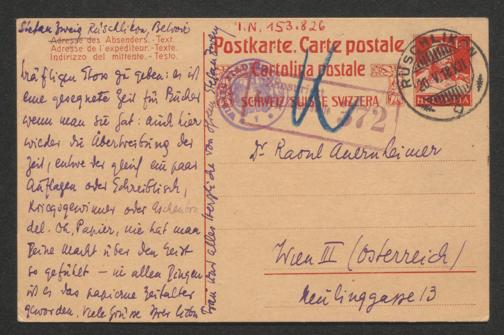 I.N. 153.826
Stefan Zweig Rüschlikon, Belvoir
Adresse des Absenders.-Text.
Adresse de l'expéditeur.-Texte.
Indirizzo del mittente.-Testo.
Postkarte. Carte postale
Cartolina postale
SCHWEIZ SUISSE SVIZZERA
RÜSCHLIKON
372
kräftigen Stoss zu geben: es ist
eine gesegnete Zeit für Bücher
wenn man sie hat. auch hier
wieder die Übertreibung der
Zeit, entweder gleich ein paar
Auflagen oder Schreibtisch,
Kriegsgewinner oder
del. Oh, Papier, nie hat man
Deine Macht über den Geist
so gefühlt – in allen Dingen
ist es das papierne Zeitalter
geworden. Viele Grüsse Ihrer
Frau und alles Herzliche von Ihrem Stefan Zweig
Dr Raoul Auernheimer
Wien III (Österreich)
Neulinggasse 13